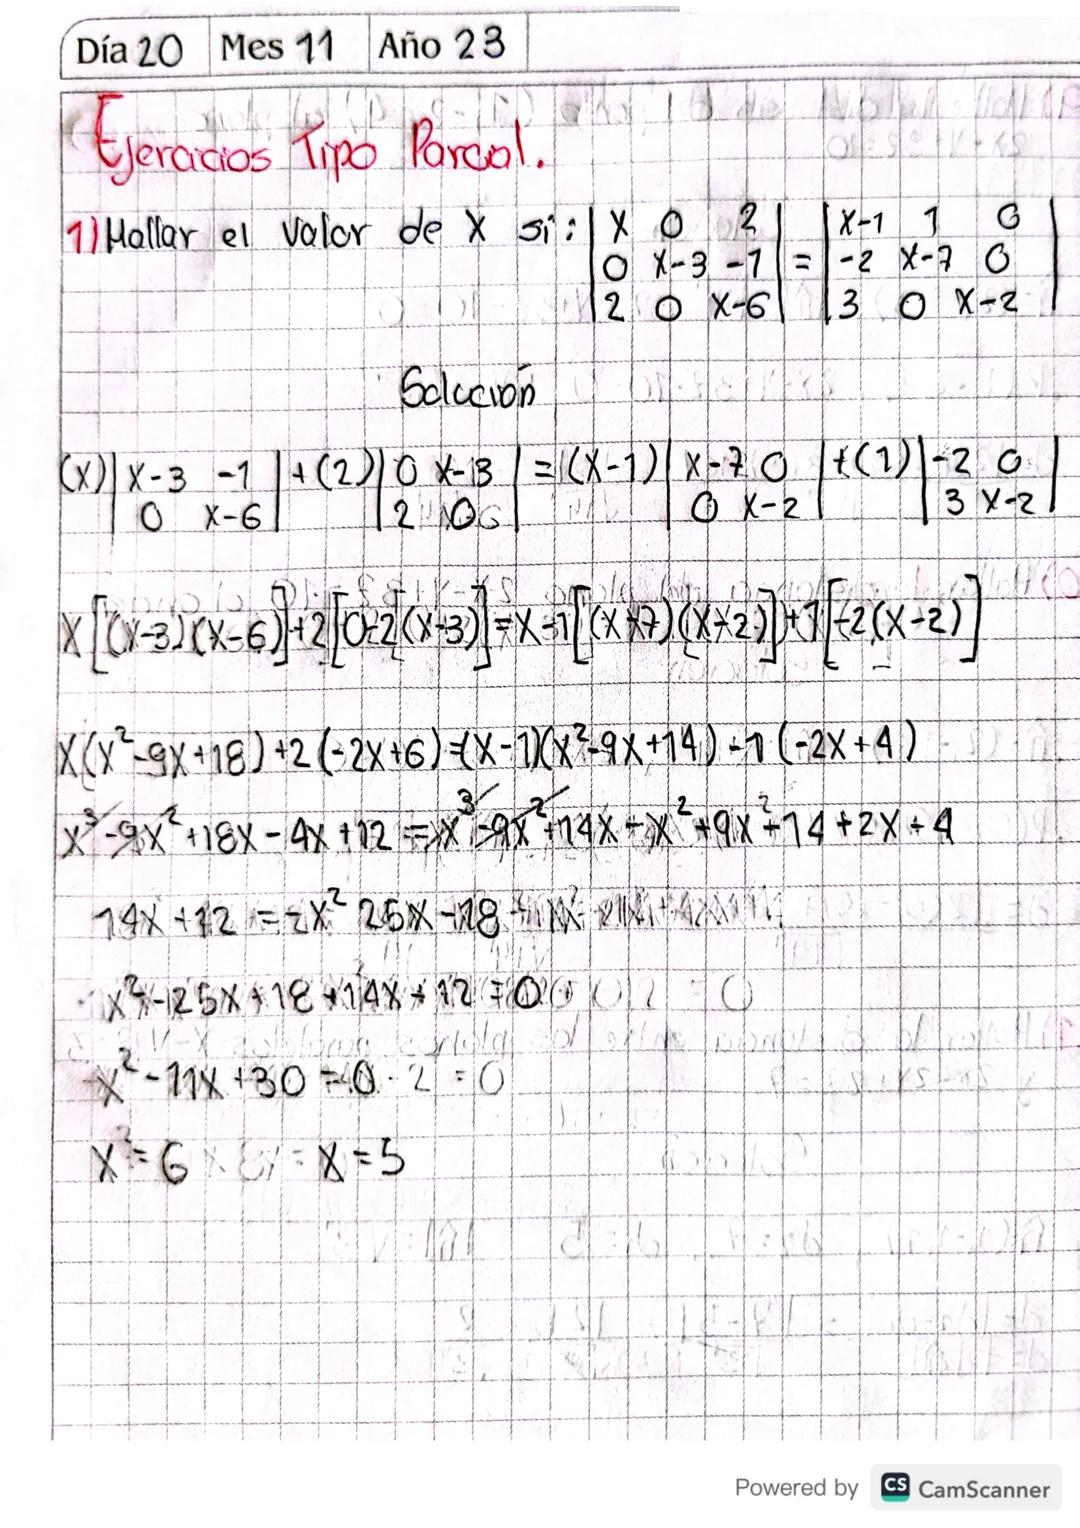 Día 20 Mes 11 Año 23
Ejercicios Tipo Parcial.
1) Hallar el Valor de X si: | X 0 2 | = | X-1 1 0 |
| 0 X-3 -1 | | -2 X-7 0 |
| 2 0 X-6 | | 3 0 X-2 |
Solución
(X) | X-3 -1 | + (2) | 0 X-3 | = (X-1) | X-7 0 | + (1) | -2 0 |
| 0 X-6 | | 2 0 | | 0 X-2 | | 3 X-2 |
X[(X-3)(X-6)]+2[0-2(X-3)]=X-1[(X-7)(X-2)]+1[-2(X-2)]
X(X²-9X+18)+2(-2X+6)=(X-1)(X²-9X+14)-1(-2X+4)
X³-9X²+18X-4X+12=X³-9X²+14X-X²+9X-14+2X-4
14X+12=-X² 25X-18
X²-25X+18+14X+12=0
X²-11X+30=0
X=6 X=5
Powered by CS CamScanner